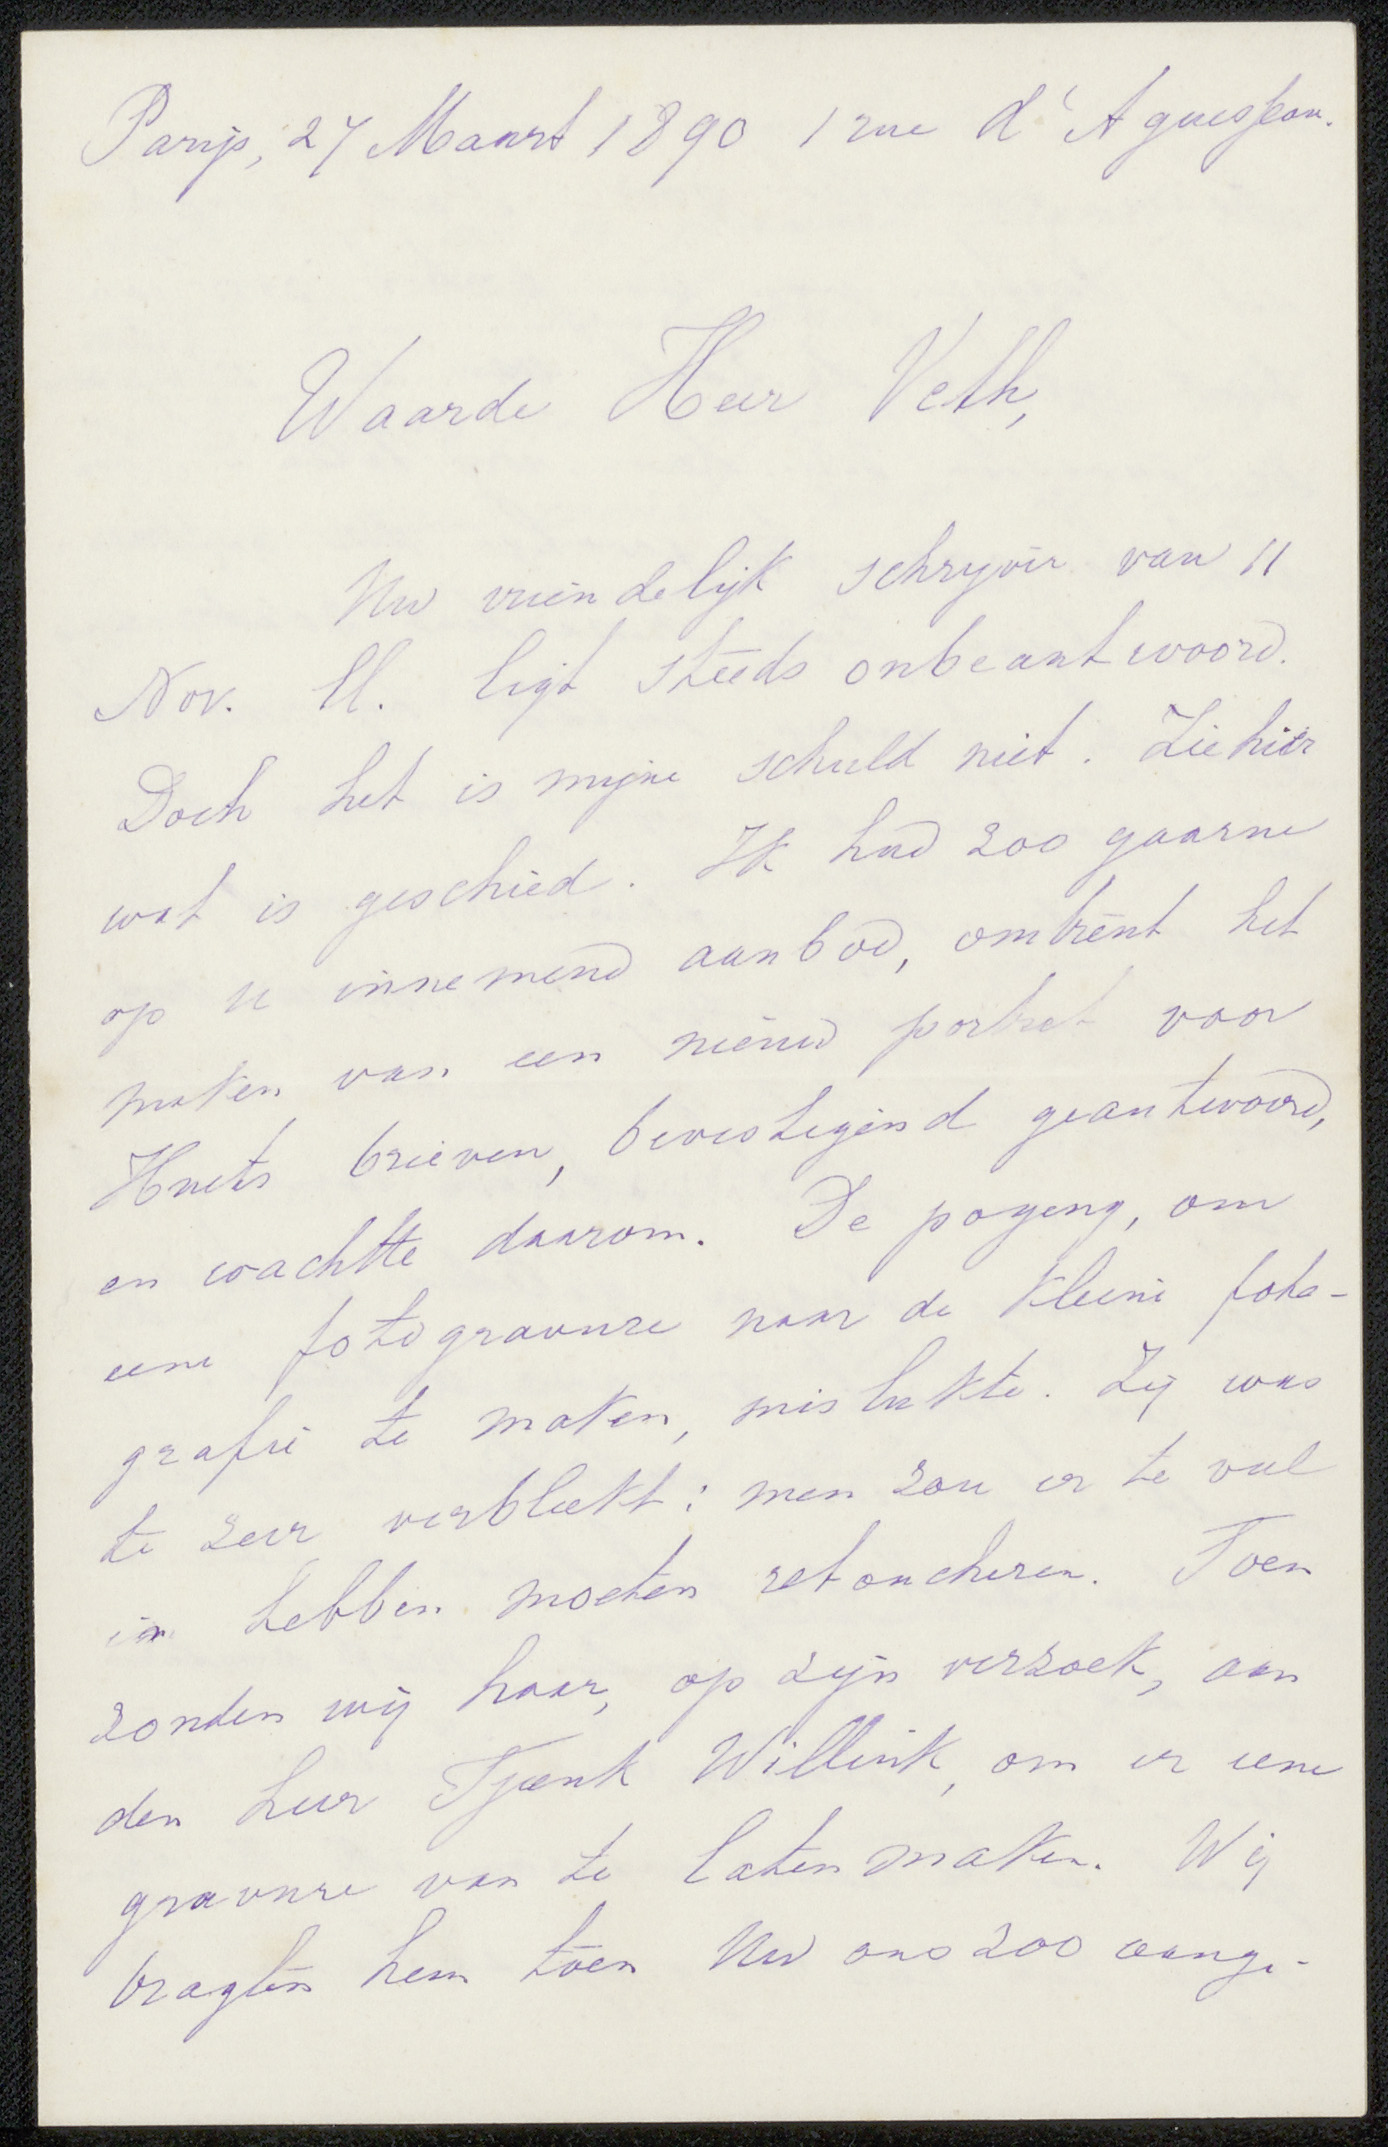 Parijs, 27 Maart 1890 1 rue d'Aguesseau.
Waarde Heer Veth,
Uw vriendelijk schrijven van 11
Nov. ll. ligt steeds onbeantwoord.
Doch het is mijne schuld niet. Ziehier
wat is geschied. Ik had zoo gaarne
op u innemend aanbod, omtrent het
maken van een nieuw portret voor
Huets brieven, bevestigend geantwoord,
en wachtte daarom. De poging, om
eene fotogravure naar de kleine foto-
grafie te maken, mislukte. Zij was
te zeer verbleekt: men zou er te veel
in hebben moeten retoucheren. Toen
zonden wij haar, op zijn verzoek, aan
den heer Tjeenk Willink, om er eene
gravure van te laten maken. Wij
bragten hem toen Uw ons zoo aange-